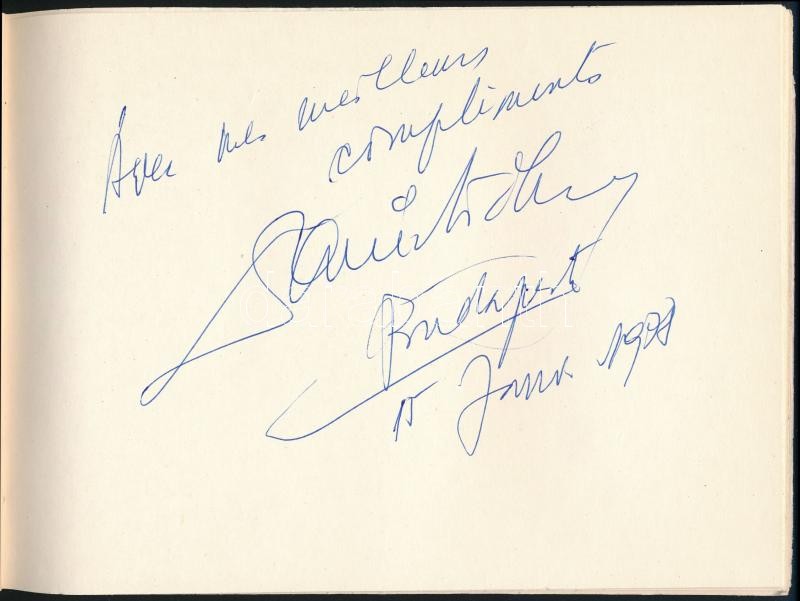 Avec mes meilleurs
compliments
Budapest
15 Janv. 19